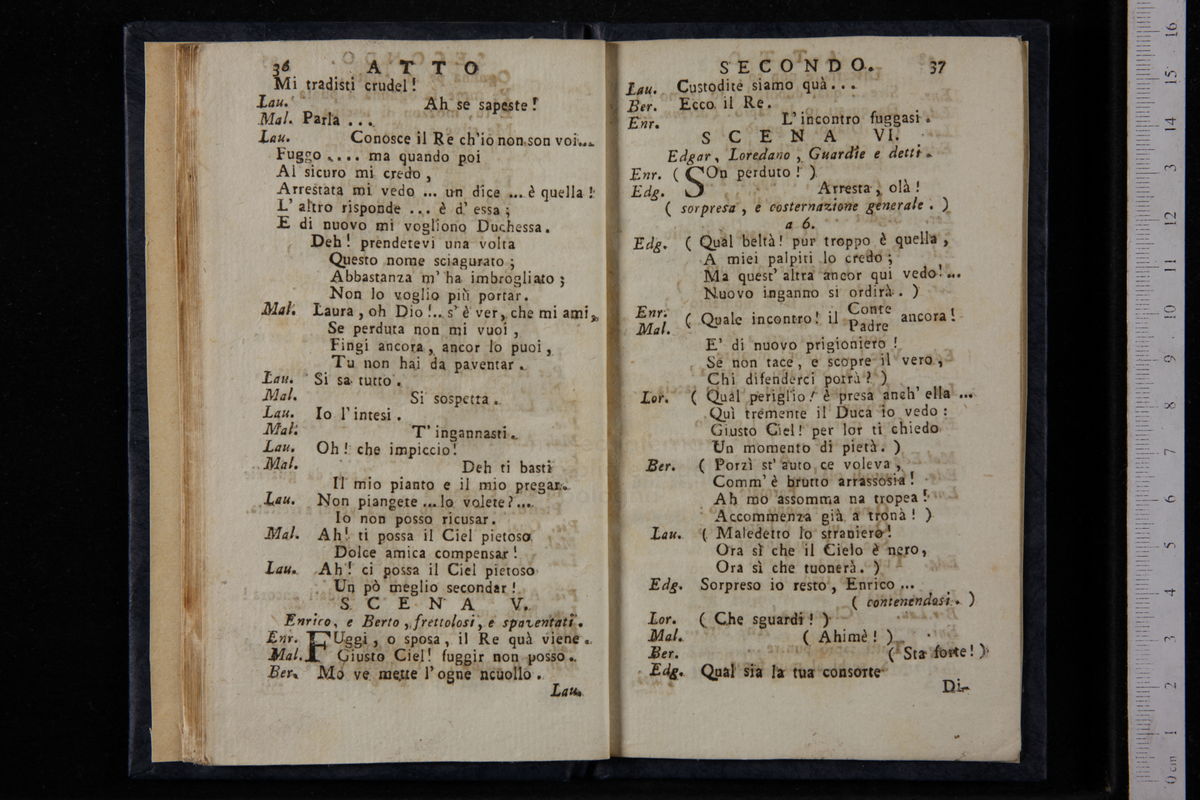 36 ATTO
Mi tradisti crudel!
Lau. Ah se sapeste!
Mal. Parla ...
Lau. Conosce il Re ch'io non son voi...
Fuggo .... ma quando poi
Al sicuro mi credo,
Arrestata mi vedo ... un dice ... è quella!
L'altro risponde ... è d'essa;
E di nuovo mi vogliono Duchessa.
Deh! prendetevi una volta
Questo nome sciagurato;
Abbastanza m'ha imbrogliato;
Non lo voglio più portar.
Mal. Laura, oh Dio!.. s'è ver, che mi ami,
Se perduta non mi vuoi,
Fingi ancora, ancor lo puoi,
Tu non hai da paventar.
Lau. Si sa tutto.
Mal. Si sospetta.
Lau. Io l'intesi.
Mal. T'ingannasti.
Lau. Oh! che impiccio!
Mal. Deh ti basti
Il mio pianto e il mio pregar.
Lau. Non piangete ... lo volete?...
Io non posso ricusar.
Mal. Ah! ti possa il Ciel pietoso
Dolce amica compensar!
Lau. Ah! ci possa il Ciel pietoso
Un pò meglio secondar!
SCENA V.
Enrico, e Berto, frettolosi, e spaventati.
Enr. FUggi, o sposa, il Re quà viene.
Mal. Giusto Ciel! fuggir non posso.
Ber. Mo ve mette l'ogne ncuollo.
Lau.
SECONDO. 37
Lau. Custodite siamo quà...
Ber. Ecco il Re.
Enr. L'incontro fuggasi.
SCENA VI.
Edgar, Loredano, Guardie e detti.
Enr. (SOn perduto!)
Edg. Arresta, olà!
(sorpresa, e costernazione generale.)
a 6.
Edg. (Qual beltà! pur troppo è quella,
A miei palpiti lo credo;
Ma quest'altra ancor qui vedo!...
Nuovo inganno si ordirà.)
Enr. Mal. (Quale incontro! il Conte Padre ancora!
E' di nuovo prigioniero!
Se non tace, e scopre il vero,
Chi difenderci potrà?)
Lor. (Qual periglio! è presa anch'ella ...
Quì tremente il Duca io vedo:
Giusto Ciel! per lor ti chiedo
Un momento di pietà.)
Ber. (Porzì st'auto ce voleva,
Comm'è brutto arrassosia!
Ah mo assomma na tropea!
Accommenza già a tronà!)
Lau. (Maledetto lo straniero!
Ora sì che il Cielo è nero,
Ora sì che tuonerà.)
Edg. Sorpreso io resto, Enrico ...
(contenendosi.)
Lor. (Che sguardi!)
Mal. (Ahimè!)
Ber. (Sta forte!)
Edg. Qual sia la tua consorte
Di-